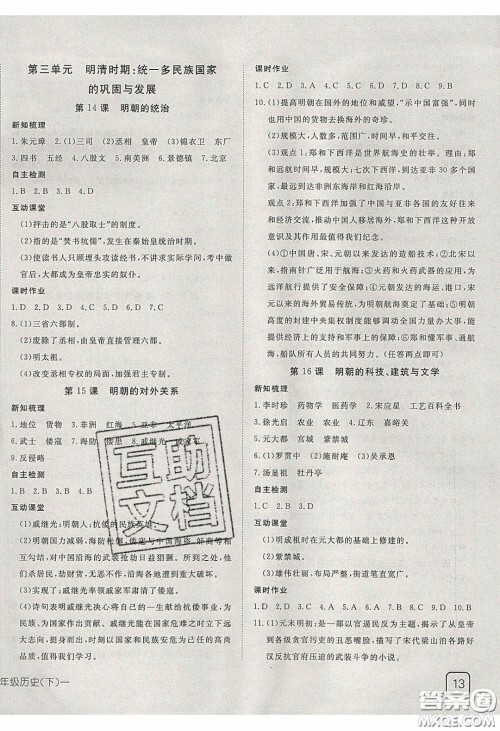 第三单元　明清时期:统一多民族国家
的巩固与发展
第 14 课　明朝的统治
新知梳理
1. 朱元璋　2. (1)三司　(2)丞相　皇帝　(3)锦衣卫　东厂
3. 四书　五经　4. 八股文　5. 南美洲　6. 景德镇　7. 北京
自主检测
1. B　2. B　3. B　4. D
互动课堂
(1)抨击的是“八股取士”的制度。
(2)指的是“焚书坑儒”,发生在秦始皇统治时期。
(3)使读书人只顾埋头攻读经书,不讲求实际学问,考中做
官后,大都成为皇帝忠实的奴仆。
课时作业
1. D　2. B　3. A　4. D　5. D　6. B　7. C
8. (1)三省六部制。
(2)废除了丞相,由皇帝直接管辖六部。
(3)明太祖。
(4)改变丞相名存实亡、加强君主专制。
第 15 课　明朝的对外关系
新知梳理
1. 地位　货物　3. 非洲　红海　5. 亚非　太平洋
6. 武士　倭寇　7. 海防　倭患　8. 戚继光
9. 反侵略
自主检测
1. B　2. D　3. D　4. C
互动课堂
(1)戚继光:明朝人;抗倭的民族英雄。
(2)原因:明朝国力减弱,海防松弛,倭寇与中国海盗、奸商相
互勾结,对中国沿海的武装抢劫日益猖獗。所到之处,他
们杀居民,劫财物,对东南沿海造成重大破坏。
(3)结果:戚继光率领戚家军肃清了倭寇。
(4)诗句表明戚继光决心将自己的一生献给抗倭事业,也
为民族立下了功勋。戚继光能在艰难处境中立下伟大志
向,并一直朝着志向努力。我们要学习他这种精神,努力
实现国家和民族安定。
年级历史(下)一
课时作业
1. C　2. A　3. C　4. D　5. B　6. C　7. C　8. A　9. D
10. (1)提高明朝在外国的地位和威望,“示中国富强”,同时
也用中国的货物去换取海外的奇珍。
(2)规模大,人数多,范围广,时间早,持续时间长等。
(3)观点 1:郑和下西洋是世界航海史上的壮举。因为郑
和下西洋规模大、人数多、时间长,先后到达亚非 30 多个
国家和地区,最远到达非洲东海岸和红海沿岸。
观点 2:郑和下西洋加强了中国与亚非各国在政治、经
济和文化方面的友好往来,促进了中国与亚非国家的
经济交流,推动中国人移居海外,郑和下西洋的这种开放
意识及其作用值得我们学习。
(4)①中国唐、宋、元朝以来发达的造船技术;②北宋以
来指南针广泛应用于航海;③火药和火药武器的应用,
为远洋航行提供了安全保障;④唐朝以来发达的海运,宋
元以来的海外贸易传统;⑤明朝强大的经济实力;⑥明朝
高度的封建中央集权制度能够组织全国力量办大事,能
进行庞大的世界性远航;⑦郑和的个人因素,勇敢、通晓
航海,船队所有人员共同的努力。(答出两点即可)
第 16 课　明朝的科技、建筑与文学
新知梳理
1. 李时珍　药物学　医药学　2. 宋应星　工艺百科全书
3. 徐光启　农业　4. 辽东　嘉峪关
5. 元大都　宫城　紫禁城
6. (1)罗贯中　(2)施耐庵　(3)吴承恩
7. 汤显祖　牡丹亭
自主检测
1. C　2. C　3. D　4. C
互动课堂
(1)明成祖时在元大都的基础上修建的。
(2)紫禁城。
(3)雄伟壮丽,布局和谐统一,街道笔直宽广。
课时作业
1. D　2. D　3. D　4. A　5. D　6. D　7. C　8. D　9. D　10. B
11. (1)元末明初;揭露了北宋末年政治黑暗,上自皇帝下
到各级贪官污吏的丑恶嘴脸,真实描写了宋代梁山泊各路好
汉反抗官府压迫的武装斗争和英雄事迹。
13
互助
文档
答案圈
MXQE.COM